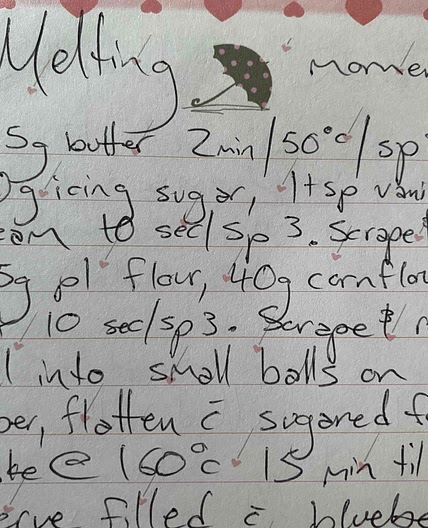 Melting Momen
5g butter 2min/50°c/sp
0g icing sugar, 1tsp vani
eam 10 sec/sp 3. Scrape
5g pl flour, 40g cornflou
10 sec/sp3. Scrape & r
l into small balls on
per, flatten c̄ sugared f
ke @ 160°c 15 min til
erve filled c̄ bluebe